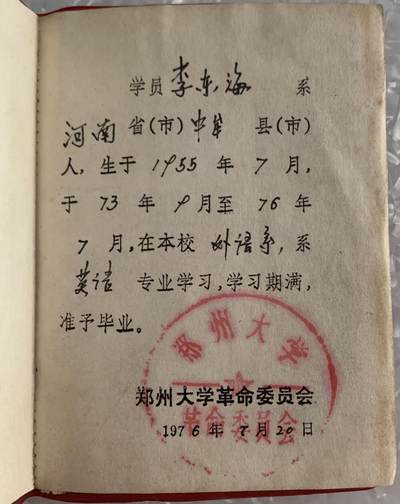 学员李东海 系
河南省(市)中牟县(市)
人,生于1955年7月,
于73年9月至76年
7月,在本校外语系,系
英语 专业学习,学习期满,
准予毕业。
郑州大学
郑州大学革命委员会
革命委员会
1976年7月20日